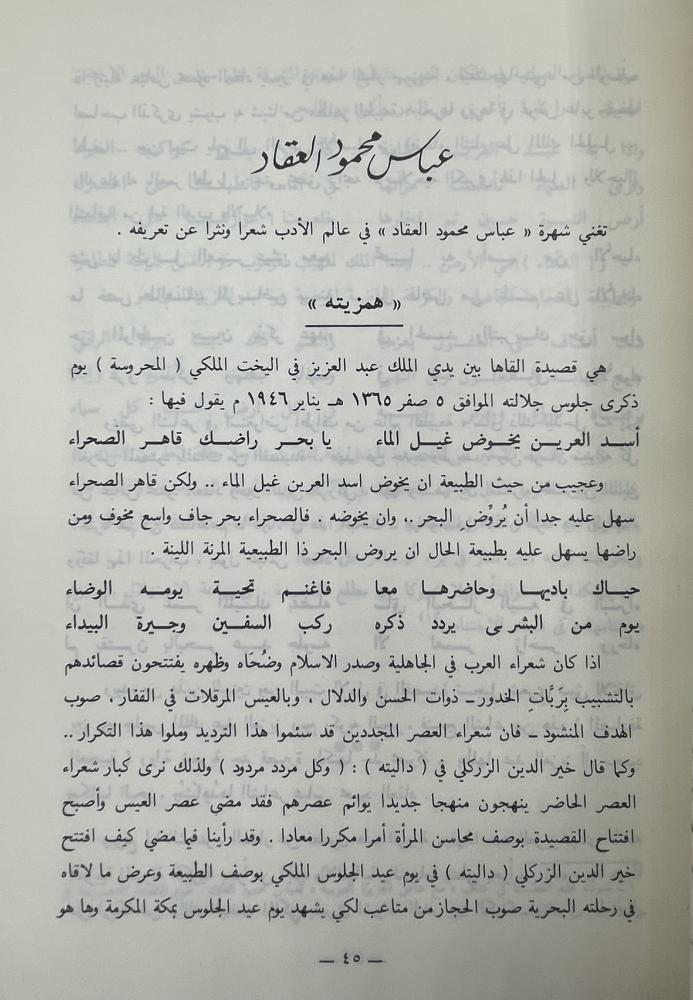 عباس محمود العقاد
تغني شهرة « عباس محمود العقاد » في عالم الأدب شعرا ونثرا عن تعريفه .
« همزيته »
هي قصيدة القاها بين يدي الملك عبد العزيز في اليخت الملكي ( المحروسة ) يوم
ذكرى جلوس جلالته الموافق ٥ صفر ١٣٦٥ هـ يناير ١٩٤٦ م يقول فيها :
أسد العرين يخوض غيل الماء يا بحر راضك قاهر الصحراء
وعجيب من حيث الطبيعة ان يخوض اسد العرين غيل الماء .. ولكن قاهر الصحراء
سهل عليه جدا أن يُروِّض البحر .، وان يخوضه . فالصحراء بحر جاف واسع مخوف ومن
راضها يسهل عليه بطبيعة الحال ان يروض البحر ذا الطبيعية المرنة اللينة .
حياك باديها وحاضرها معا فاغنم تحية يومه الوضاء
يوم من البشرى يردد ذكره ركب السفين وجيرة البيداء
اذا كان شعراء العرب في الجاهلية وصدر الاسلام وضُحَاه وظهره يفتتحون قصائدهم
بالتشبيب بِرَبَّاتِ الخدور ــ ذوات الحسن والدلال ، وبالعيس المرقلات في القفار ، صوب
الهدف المنشود ــ فان شعراء العصر المجددين قد سئموا هذا الترديد وملوا هذا التكرار ..
وكما قال خير الدين الزركلي في ( داليته ) : ( وكل مردد مردود ) ولذلك نرى كبار شعراء
العصر الحاضر ينهجون منهجا جديدا يوائم عصرهم فقد مضى عصر العيس وأصبح
افتتاح القصيدة بوصف محاسن المرأة أمرا مكررا معادا . وقد رأينا فيما مضي كيف افتتح
خير الدين الزركلي ( داليته ) في يوم عيد الجلوس الملكي بوصف الطبيعة وعرض ما لاقاه
في رحلته البحرية صوب الحجاز من متاعب لكي يشهد يوم عيد الجلوس بمكة المكرمة وها هو
— ٤٥ —